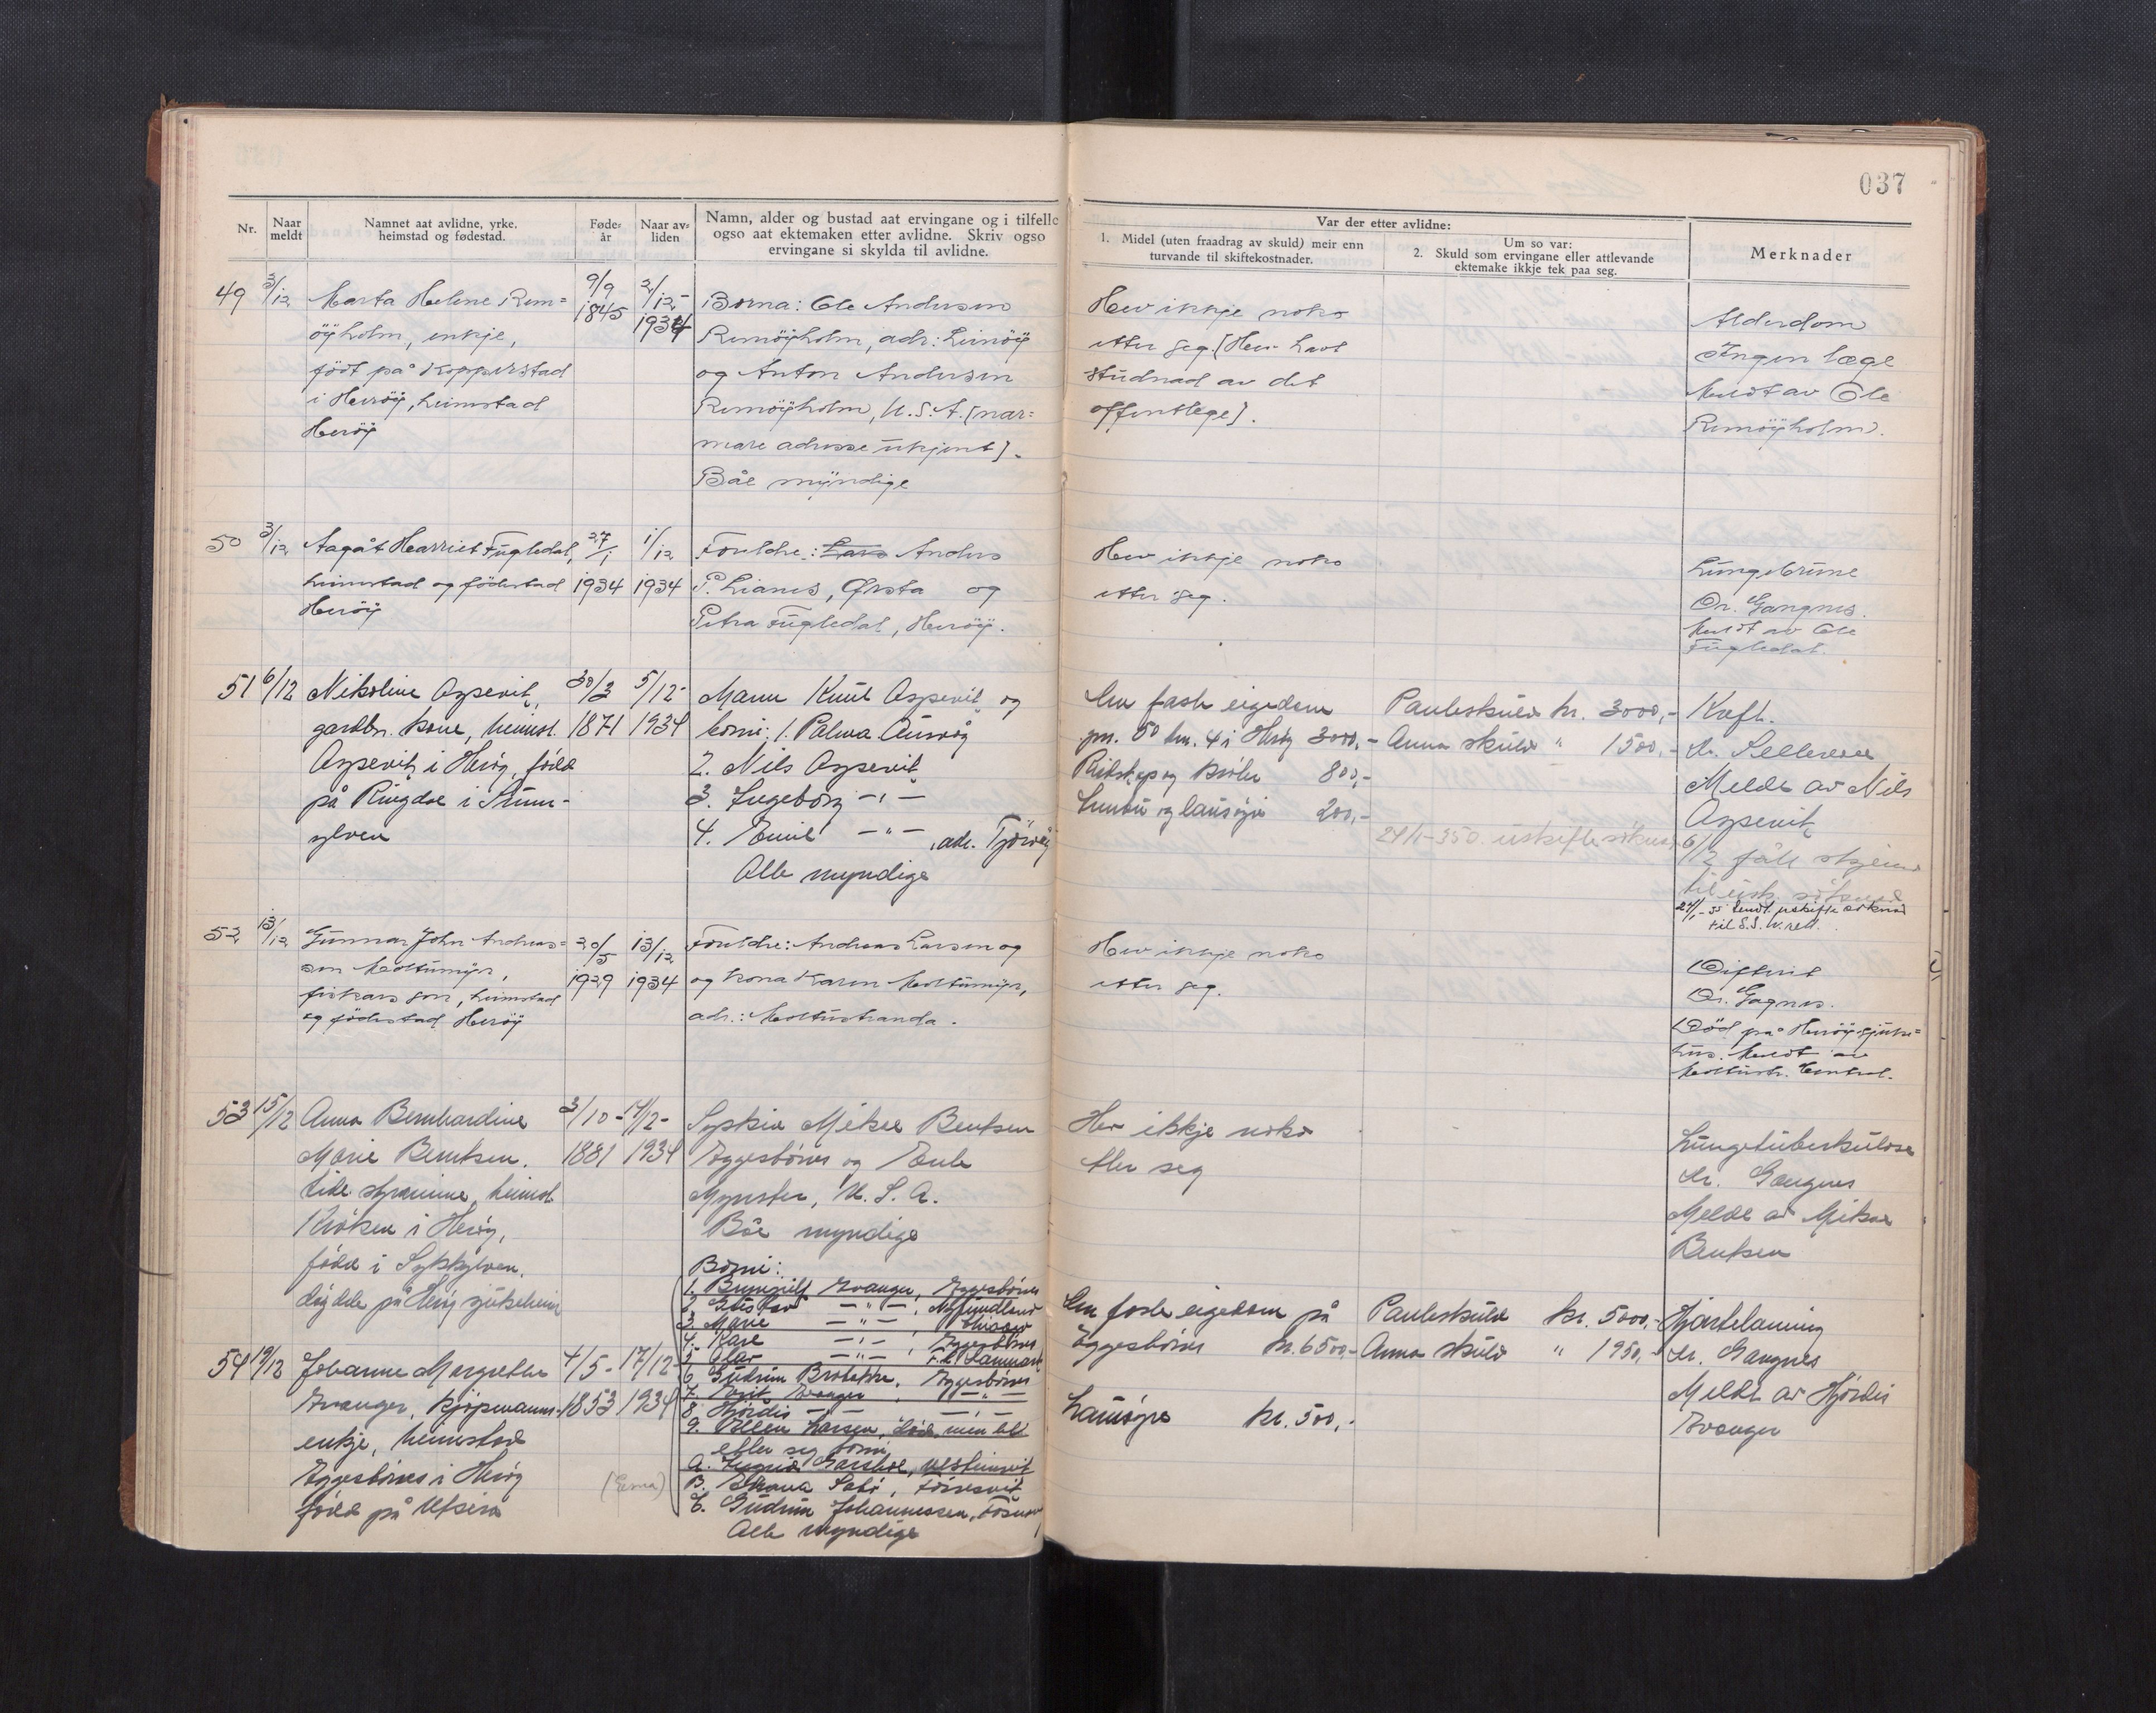 037
Nr.
Naar meldt
Namnet aat avlidne, yrke, heimstad og fødestad.
Føde-år
Naar av-liden
Namn, alder og bustad aat ervingane og i tilfelle ogso aat ektemaken etter avlidne. Skriv ogso ervingane si skylda til avlidne.
Var der etter avlidne:
1. Midel (uten fraadrag av skuld) meir enn turvande til skiftekostnader.
Um so var:
2. Skuld som ervingane eller attlevande ektemake ikkje tek paa seg.
Merknader
49 3/12 Marta Helene Rem=
öyholm, enkje,
födt på Kopperstad
i Heröy, heimstad
Heröy
9/9
1845
2/12-
1934
Borna: Ole Andersen
Remöyholm, adr: Leinöy
og Anton Andersen
Remöyholm, U.S.A. [nær=
mare adresse ukjent].
Båe myndige
Hev ikkje noko
etter seg. [Hev havt
studnad av det
offentlege].
Alderdom
Ingen læge
Meldt av Ole
Remöyholm.
50 3/12 Aagåt Harriet Fugledal,
heimstad og födestad
Heröy
27/1
1934
1/12
1934
Foreldre: Lars Anders
P. Lianes, Ørsta og
Petra Fugledal, Heröy.
Hev ikkje noko
etter seg.
Lungebrune
Dr. Gangnes.
Meldt av Ole
Fugledal.
51 6/12 Nikoline Aspevik,
gardbr. kone, heimst.
Aspevik i Heröy, född
på Ringdal i Sunn-
ylven
30/3
1871
5/12-
1934
Mann Knut Aspevik og
borni: 1. Palma Aurvåg
2. Nils Aspevik
3. Ingeborg -"-
4. Emil -"- , adr. Tjörvåg
Alle myndige
Ein fast eigedom
gnr. 50 bnr. 4 i Heröy 3000,-
Reidskap og kröter 800,-
Innbu og lausöyre 200,-
Panteskuld kr. 3000,-
Anna skuld " 1500,-
24/1-35 O. uskifte söknad
Kreft.
dr. Sellevold
Meldt av Nils
Aspevik
6/12 fått skjema
til usk. söknad
24/1-35 Sendt uskiftesöknad
til S.S. h.rett.
52 13/12 Gunnar John Andreas=
sen Moltumyr,
fiskars son, heimstad
og födestad Heröy
20/5
1929
13/12
1934
Foreldre: Andreas Larsen og
og kona Karen Moltumyr,
adr.: Moltustranda.
Hev ikkje noko
etter seg.
Difterit
Dr. Gagnes.
Död på Heröy sjuke=
hus. Meldt av
Moltustr. Central.
53 15/12 Anna Bernhardine
Marie Bentsen.
tidl.strömme, heimst
Kröken i Heröy,
född i Sykkylven.
döydde på Heröy sjukeheim
3/10-
1881
14/12-
1934
Syskin Mikal Bentsen
Eggesbönes og Emle
Mynster, U.S.A.
Båe myndige
Hev ikkje noko
etter seg
Lungetuberkulose
dr. Gangnes
Meldt av Mikal
Bentsen
54 19/12 Johanne Margrethe
Evanger, kjöpmanns-
enkje, heimstad
Eggesbönes i Heröy
född på Utsira
4/5-
1853
17/12-
1934
Borni:
1. Brynjulf Evanger, Eggesbönes
2. Gustav -"- , Nyfundland
3. Marie -"-
4. Kåre -"- , Eggesbönes
5. Olav -"-
6. Gudrun Brobakke, Eggesbönes
7. Erit Evanger -"-
8. Hjördis -"- -"-
9. Ellen Larsen, död, men let
etter seg born:
A. Ingrid
B.
C. Gudrun Johannessen, Fosnavåg
Alle myndige
(Erna)
Ein fast eigedom på
Eggesbönes kr. 6500,-
Lausöyre kr. 500,-
Panteskuld kr. 5000,-
Anna skuld " 1950,-
Hjartelaming
dr. Gangnes
Meldt av Hjördis
Evanger